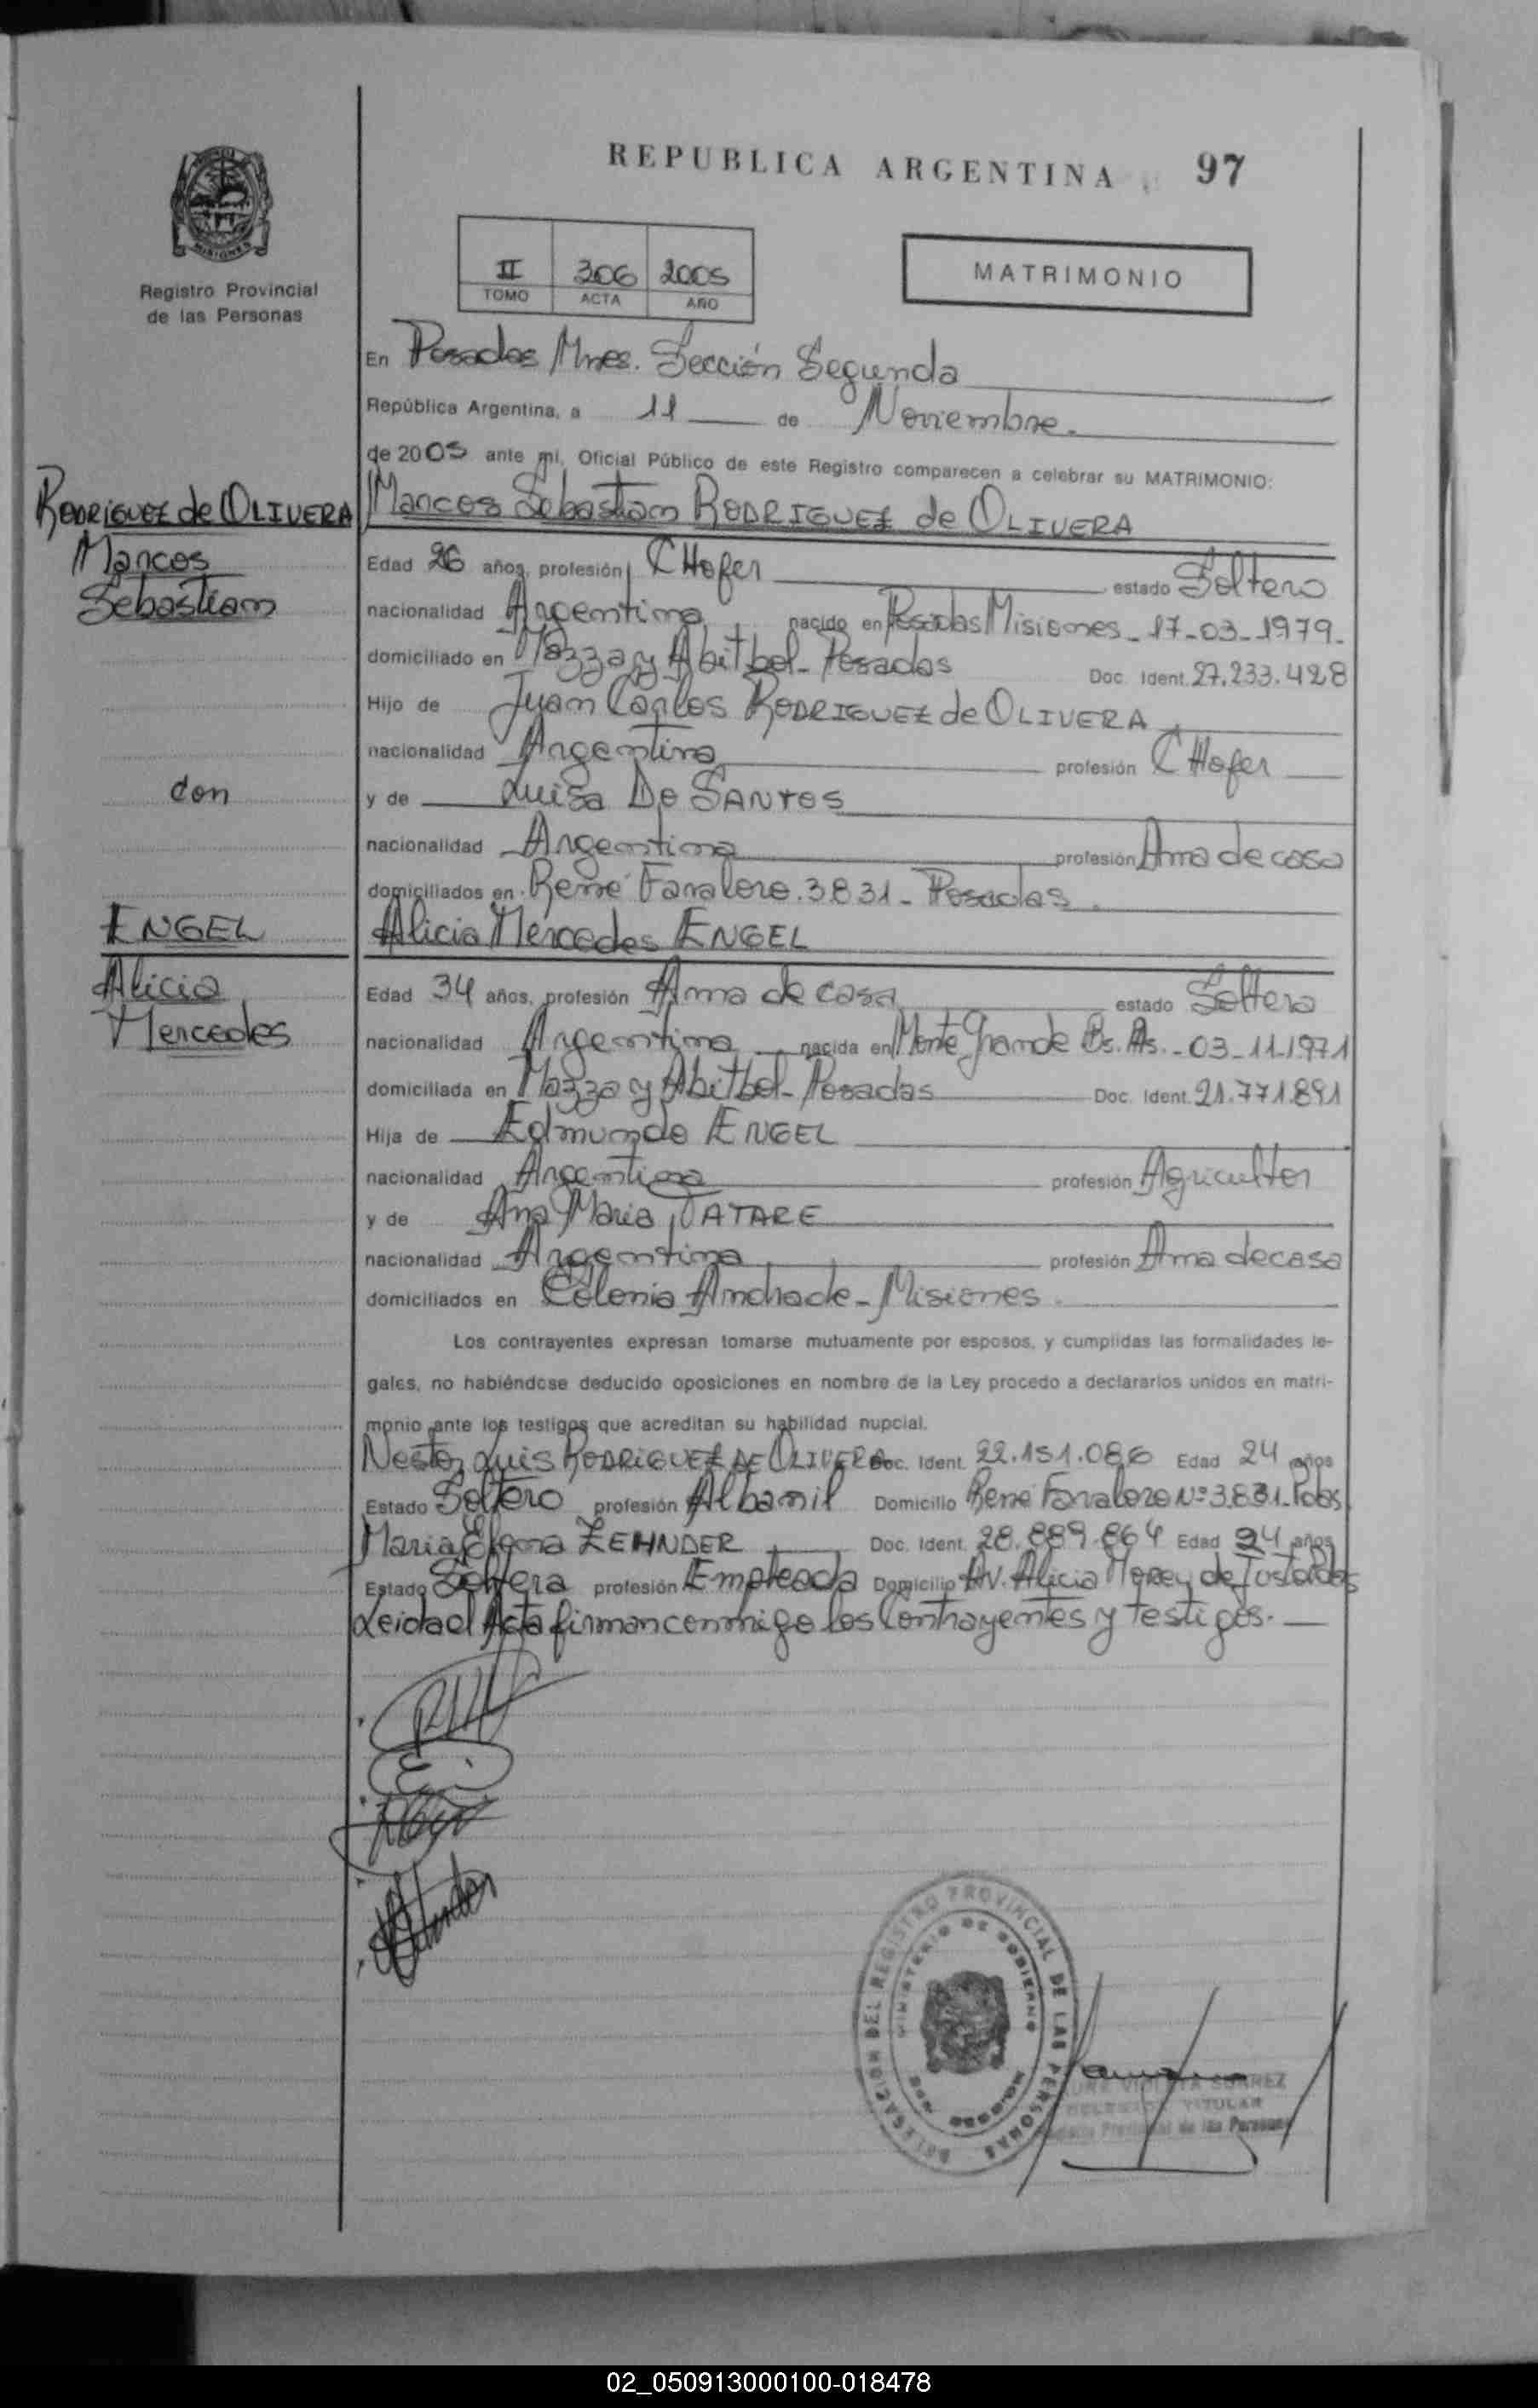 REPUBLICA ARGENTINA 97
Registro Provincial
de las Personas
II 306 2005
TOMO ACTA AÑO
MATRIMONIO
En Posadas Mnes. Sección Segunda
República Argentina, a 11 de Noviembre.
de 2005 ante mi, Oficial Público de este Registro comparecen a celebrar su MATRIMONIO:
RODRIGUEZ de OLIVERA
Mancos
Sebastian
con
ENGEL
Alicia
Mercedes
Marcos Sebastian RODRIGUEZ de OLIVERA
Edad 26 años, profesión CHofer estado Soltero
nacionalidad Argentina nacido en Posadas Misiones - 17-03-1979.
domiciliado en Mazza y Abitbol - Posadas Doc. Ident. 27.233.428
Hijo de Juan Carlos RODRIGUEZ de OLIVERA
nacionalidad Argentina profesión CHofer
y de Luisa Do SANTOS
nacionalidad Argentina profesión Ama de casa
domiciliados en Rene Favaloro. 3831 - Posadas.
Alicia Mercedes ENGEL
Edad 34 años, profesión Ama de casa estado Soltera
nacionalidad Argentina nacida en Monte Grande Bs. As. - 03-11-1971
domiciliada en Mazza y Abitbol - Posadas Doc. Ident. 21.771.891
Hija de Edmundo ENGEL
nacionalidad Argentina profesión Agricultor
y de Ana Maria TATARE
nacionalidad Argentina profesión Ama de casa
domiciliados en Colonia Andrade - Misiones.
Los contrayentes expresan tomarse mutuamente por esposos, y cumplidas las formalidades le-
gales, no habiéndose deducido oposiciones en nombre de la Ley procedo a declararlos unidos en matri-
monio ante los testigos que acreditan su habilidad nupcial.
Nestor Luis RODRIGUEZ DE OLIVERA Doc. Ident. 22.151.086 Edad 24 años
Estado Soltero profesión Albanil Domicilio Rene Favaloro Nº 3831 - Pdas
Maria Elena ZEHNDER Doc. Ident. 28.889.864 Edad 24 años
Estado Soltera profesión Empleada Domicilio AV. Alicia Morey de Justo Pdas
Leida el Acta firman conmigo los Contrayentes y testigos.
DELEGACION DEL REGISTRO PROVINCIAL DE LAS PERSONAS
MINISTERIO DE GOBIERNO
SUAREZ
TITULAR
Provincial de las Personas
02_050913000100-018478